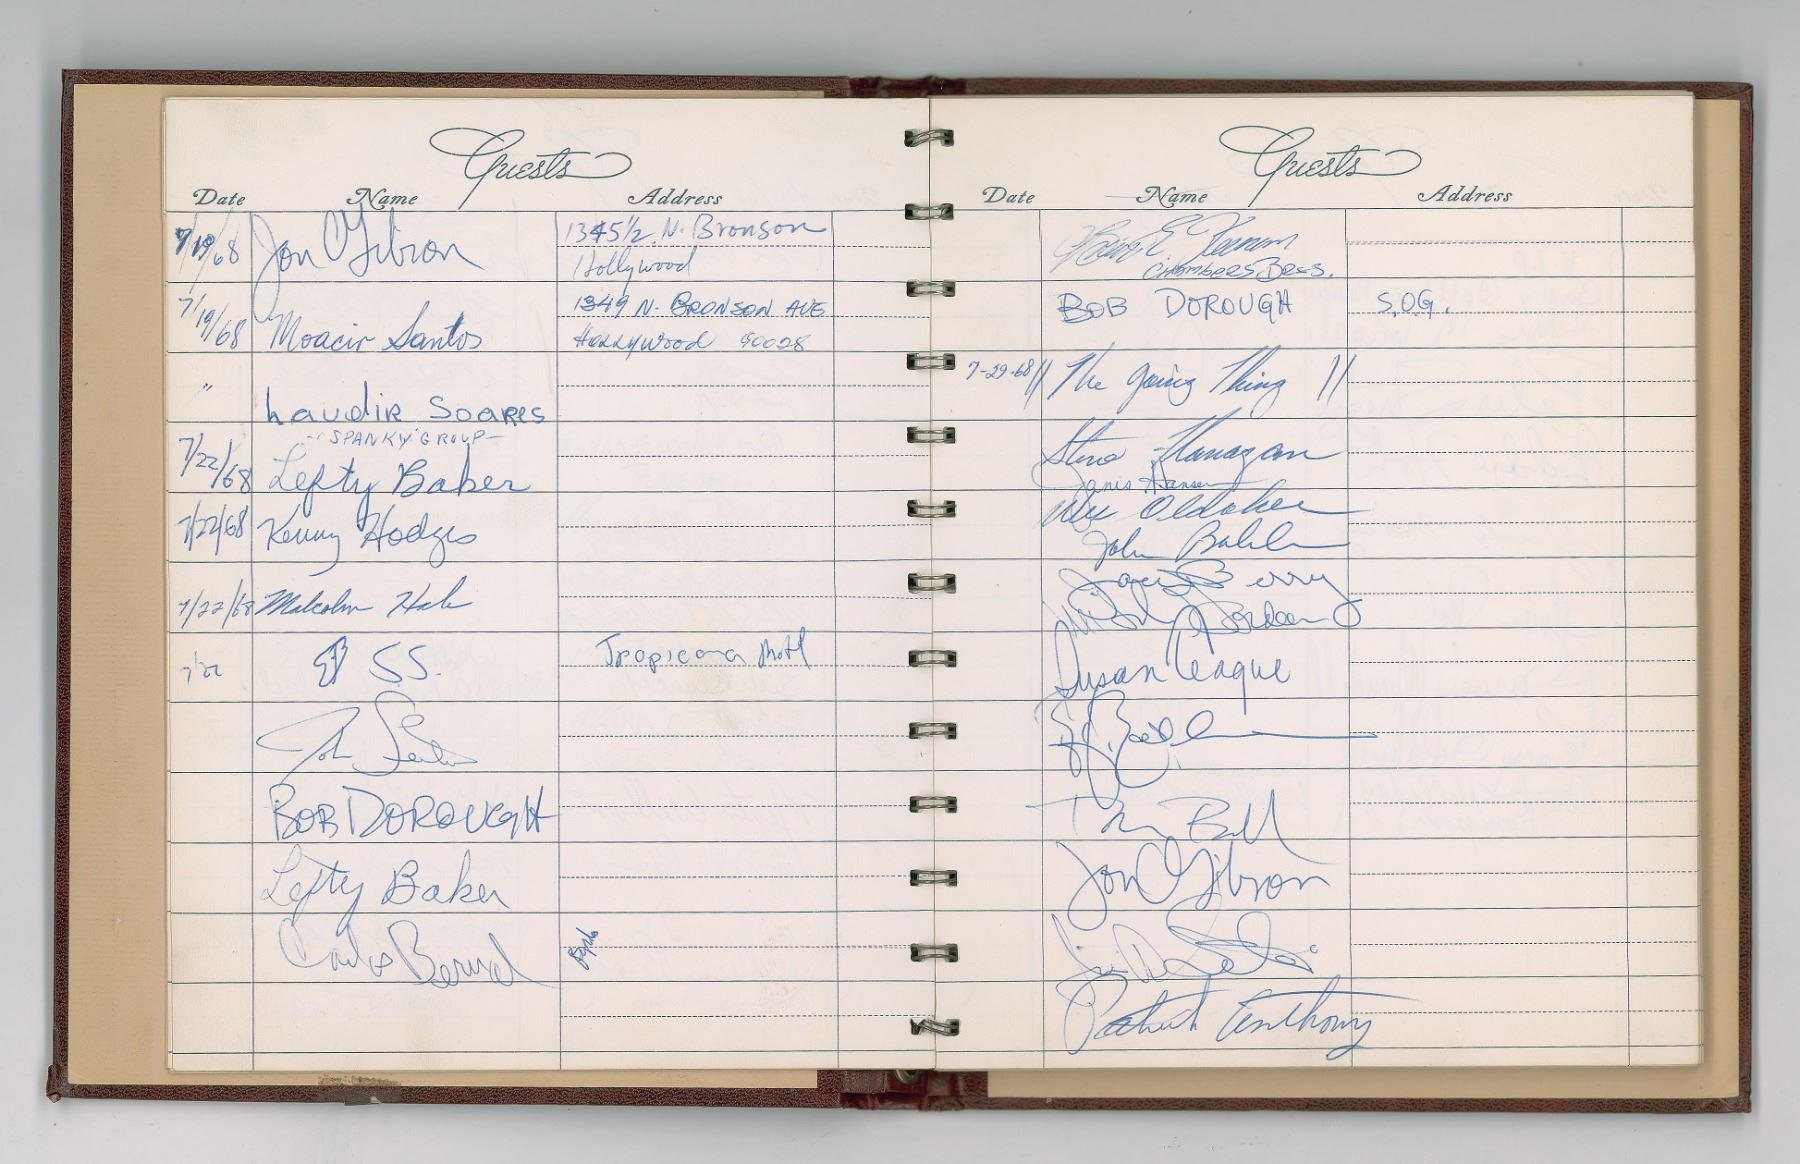 Guests
Date Name Address
7/19/68 Jon Gibson 1345 1/2 N. Bronson
Hollywood
7/19/68 Moacir Santos 1349 N. BRONSON AVE
Hollywood 90028
" Laudir Soares
- SPANKY GROUP -
7/22/68 Lefty Baker
7/22/68 Kenny Hodges
7/22/68 Malcolm Hale
7/22 S.S. Tropicana Motel
John
BOB DOROUGH
Lefty Baker
Carlos Bernal Byrds
Guests
Date Name Address
Chambers Bros.
BOB DOROUGH S.O.G.
7-29-68 // The Going Thing //
Steve Flanagan
Janis Hansen
Oldaker
John
Berry
Susan Teague
Jon Gibson
Patrick Anthony